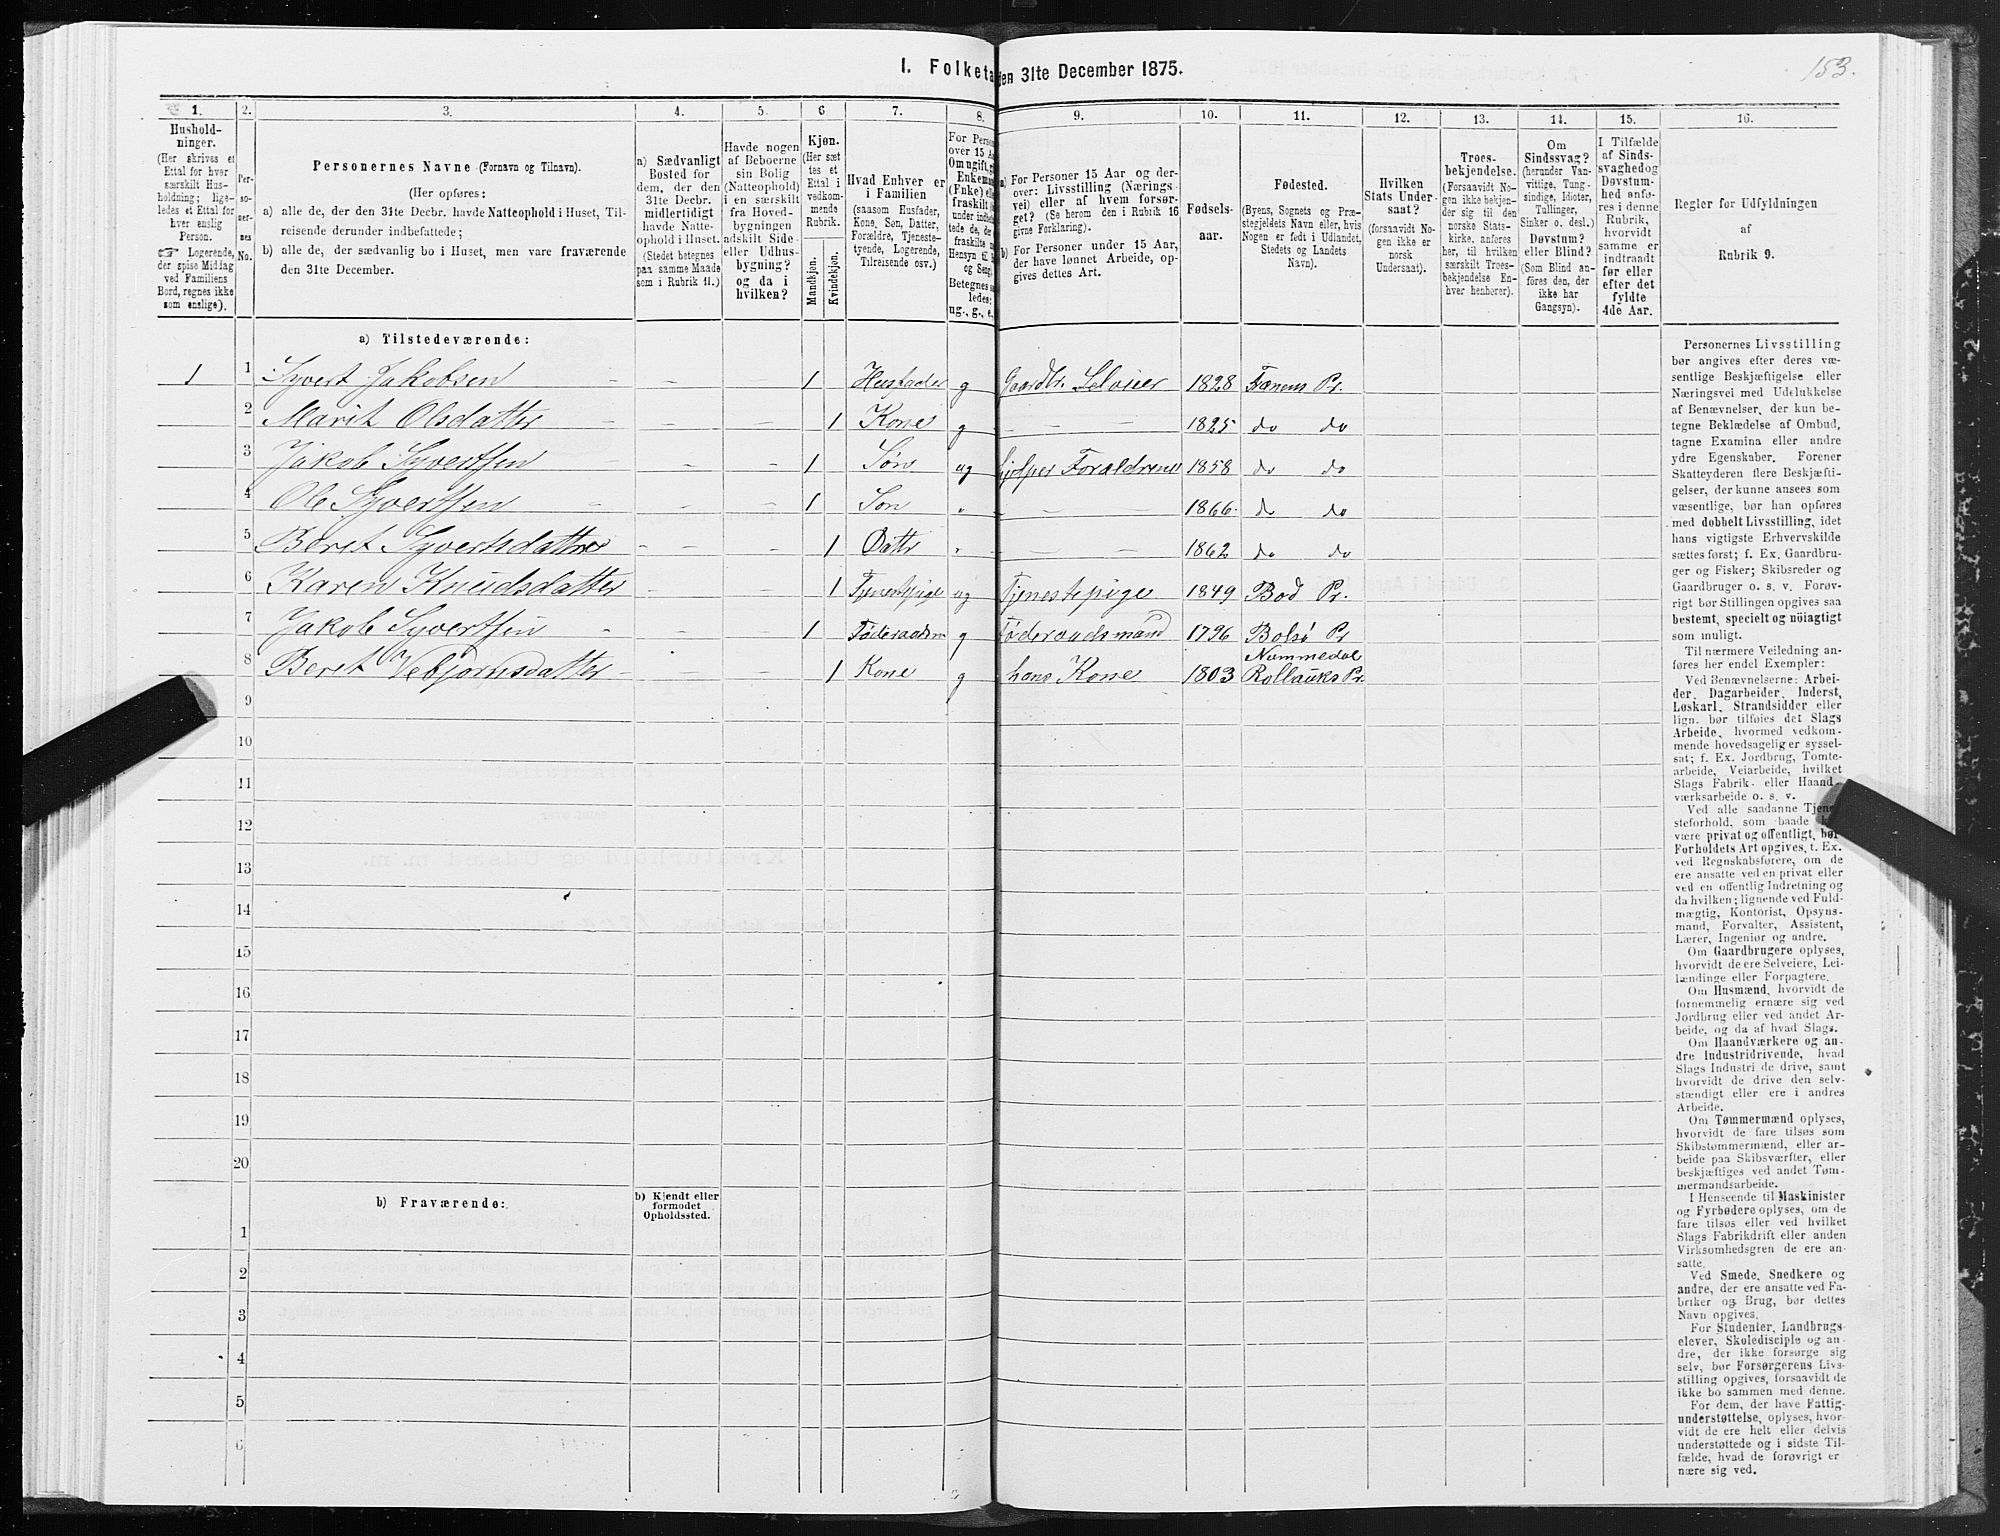 I. Folketa den 31te December 1875.
153.
1.
2.
3.
4.
5.
6.
7.
8.
9.
10.
11.
12.
13.
14.
15.
16.
Hushold-
ninger.
(Her skrives et
Ettal for hver
særskilt Hus-
holdning; lige-
ledes et Ettal for
hver enslig
Person.
☞ Logerende,
der spise Middag
ved Familiens
Bord, regnes ikke
som enslige).
Per-
so-
ner-
nes
No.
Personernes Navne (Fornavn og Tilnavn).
(Her opføres:
a) alle de, der den 31te Decbr. havde Natteophold i Huset, Til-
reisende derunder indbefattede;
b) alle de, der sædvanlig bo i Huset, men vare fraværende
den 31te December.
a) Sædvanligt
Bosted for
dem, der den
31te Decbr.
midlertidigt
havde Natte-
ophold i Huset.
(Stedet betegnes
paa samme Maade
som i Rubrik 11.)
Havde nogen
af Beboerne
sin Bolig
(Natteophold)
i en særskilt
fra Hoved-
bygningen
adskilt Side-
eller Udhus-
bygning?
og da i
hvilken?
Kjøn.
(Her sæt
tes et
Ettal i
vedkom-
mende
Rubrik.
Mandkjøn.
Kvindekjøn.
Hvad Enhver er
i Familien
(saasom Husfader,
Kone, Søn, Datter,
Forældre, Tjeneste-
tyende, Logerende,
Tilreisende osv.)
For Perso
over 15 Aa
Om ugift, g
Enkema
(Fnke) e
fraskilt
under indb
tede de, de
fraskilte
Hensyn til
og Seng
Betegnes s
ledes:
ug., g., e.
a) For Personer 15 Aar og der-
over: Livsstilling (Nærings-
vei) eller af hvem forsør-
get? (Se herom den i Rubrik 16
givne Forklaring).
b) For Personer under 15 Aar,
der have lønnet Arbeide, op-
gives dettes Art.
Fødsels-
aar.
Fødested.
(Byens, Sognets og Præ-
stegjeldets Navn eller, hvis
Nogen er født i Udlandet,
Stedets og Landets
Navn).
Hvilken
Stats Under-
saat?
(forsaavidt No-
gen ikke er
norsk
Undersaat).
Troes-
bekjendelse.
(Forsaavidt No-
gen ikke bekjen-
der sig til den
norske Stats-
kirke, anføres
her, til hvilken
særskilt Troes-
bekjendelse En-
hver henhører).
Om
Sindssvag?
(herunder Van-
vittige, Tung-
sindige, Idioter,
Tullinger,
Sinker o. desl.)
Døvstum?
eller Blind?
(Som Blind an-
føres den, der
ikke har
Gangsyn).
I Tilfælde
af Sinds-
svaghed og
Døvstum-
hed anfø-
res i denne
Rubrik,
hvorvidt
samme er
indtraadt
før eller
efter det
fyldte
4de Aar.
Regler for Udfyldningen
af
Rubrik 9.
a) Tilstedeværende:
1 1 Syvert Jakobsen - - 1 Husfader g Gaardbr. Selveier 1828 Frænens Pr.
2 Marit Olsdatter - - - 1 Kone g - - - 1825 do do
3 Jakob Syvertsen - - - 1 Søn ug hjelper Forældrene 1858 do do
4 Ole Syvertsen - - - 1 Søn " - - - 1866. do do
5 Beret Syvertsdatter - - - 1 Datter " - - 1862 do do
6 Karen Knudsdatter - - 1 Tjenestpige ug Tjenestepige 1849 Bod Pr.
7 Jakob Syvertsen - - - 1 Føderaadsm g Føderaadsmand 1796 Bolsø Pr
Nummedal
8 Beret Vebjørnsdatter - - - 1 Kone g hans Kone 1803 Pr.
9
10
11
12
13
14
15
16
17
18
19
20
b) Fraværende:
b) Kjendt eller
formodet
Opholdssted.
1
2
3
4
5
6
Personernes Livsstilling
bør angives efter deres væ-
sentlige Beskjæftigelse eller
Næringsvei med Udelukkelse
af Benævnelser, der kun be-
tegne Beklædelse af Ombud,
tagne Examina eller andre
ydre Egenskaber. Forener
Skatteyderen flere Beskjæfti-
gelser, der kunne ansees som
væsentlige, bør han opføres
med dobbelt Livsstilling, idet
hans vigtigste Erhvervskilde
sættes først; f. Ex. Gaardbru-
ger og Fisker; Skibsreder og
Gaardbruger o. s. v. Forøv-
rigt bør Stillingen opgives saa
bestemt, specielt og nöiagtigt
som muligt.
Til nærmere Veiledning an-
føres her endel Exempler:
Ved Benævnelserne: Arbei-
der, Dagarbeider, Inderst,
Løskarl, Strandsidder eller
lign. bør tilføies det Slags
Arbeide, hvormed vedkom-
mende hovedsagelig er syssel-
sat; f. Ex. Jordbrug, Tomte-
arbeide, Veiarbeide, hvilket
Slags Fabrik- eller Haand-
værksarbeide o. s. v.
Ved alle saadanne Tjene-
steforhold, som baade
være privat og offentligt, bør
Forholdets Art opgives, t. Ex.
ved Regnskabsførere, om de
ere ansatte ved en privat eller
ved en offentlig Indretning og
da hvilken; lignende ved Fuld-
mægtig, Kontorist, Opsyns-
mand, Forvalter, Assistent,
Lærer, Ingeniør og andre.
Om Gaardbrugere oplyses,
hvorvidt de ere Selveiere, Lei-
lændinge eller Forpagtere.
Om Husmænd, hvorvidt de
fornemmelig ernære sig ved
Jordbrug eller ved andet Ar-
beide, og da af hvad Slags.
Om Haandværkere og an-
dre Industridrivende, hvad
Slags Industri de drive, samt
hvorvidt de drive den selv-
stændigt eller ere i andres
Arbeide.
Om Tømmermænd oplyses,
hvorvidt de fare tilsøs som
Skibstømmermænd, eller ar-
beide paa Skibsværfter, eller
beskjæftiges ved andet Tøm-
mermandsarbeide.
I Henseende til Maskinister
og Fyrbødere oplyses, om de
fare tilsøs eller ved hvilket
Slags Fabrikdrift eller anden
Virksomhedsgren de ere an-
satte.
Ved Smede, Snedkere og
andre, der ere ansatte ved Fa-
briker og Brug, bør dettes
Navn opgives.
For Studenter, Landbrugs-
elever, Skoledisciple og an-
dre, der ikke forsørge sig
selv, bør Forsørgerens Livs-
stilling opgives, forsaavidt de
ikke bo sammen med denne.
For dem, der have Fattig-
understøttelse, oplyses, hvor-
vidt de ere helt eller delvis
understøttede og i sidste Til-
fælde, hvad de forøvrigt er-
nære sig ved.